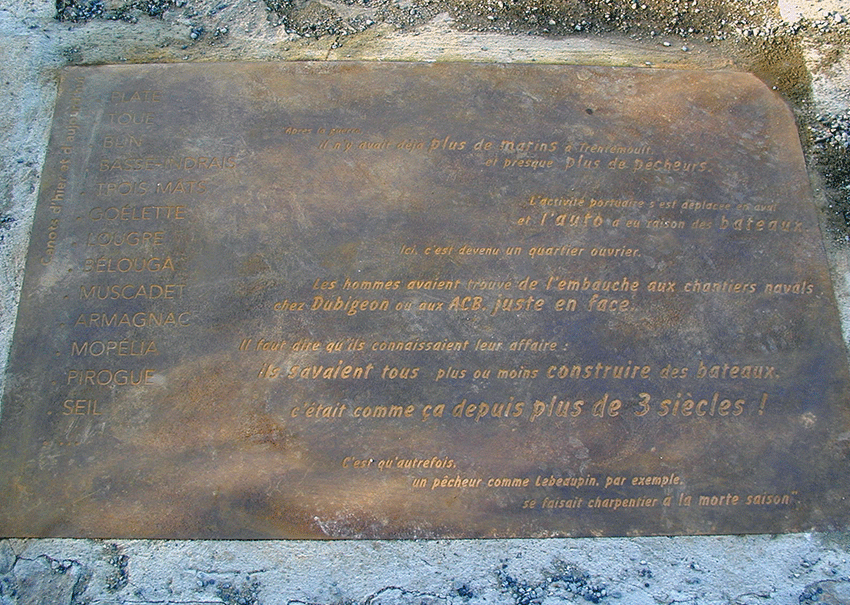 Canots d'hier et d'aujourd'hui
PLATE
TOUE
BUN
BASSE-INDRAIS
TROIS MATS
GOÉLETTE
LOUGRE
BÉLOUGA
MUSCADET
ARMAGNAC
MOPÉLIA
PIROGUE
SEIL
Après la guerre,
il n'y avait déjà plus de marins à Trentemoult
et presque plus de pêcheurs.
L'activité portuaire s'est déplacée en aval
et l'auto a eu raison des bateaux.
Ici, c'est devenu un quartier ouvrier.
Les hommes avaient trouvé de l'embauche aux chantiers navals
chez Dubigeon ou aux ACB, juste en face.
Il faut dire qu'ils connaissaient leur affaire :
ils savaient tous plus ou moins construire des bateaux.
c'était comme ça depuis plus de 3 siècles !
C'est qu'autrefois,
un pêcheur comme Lebeaupin, par exemple,
se faisait charpentier à la morte saison".